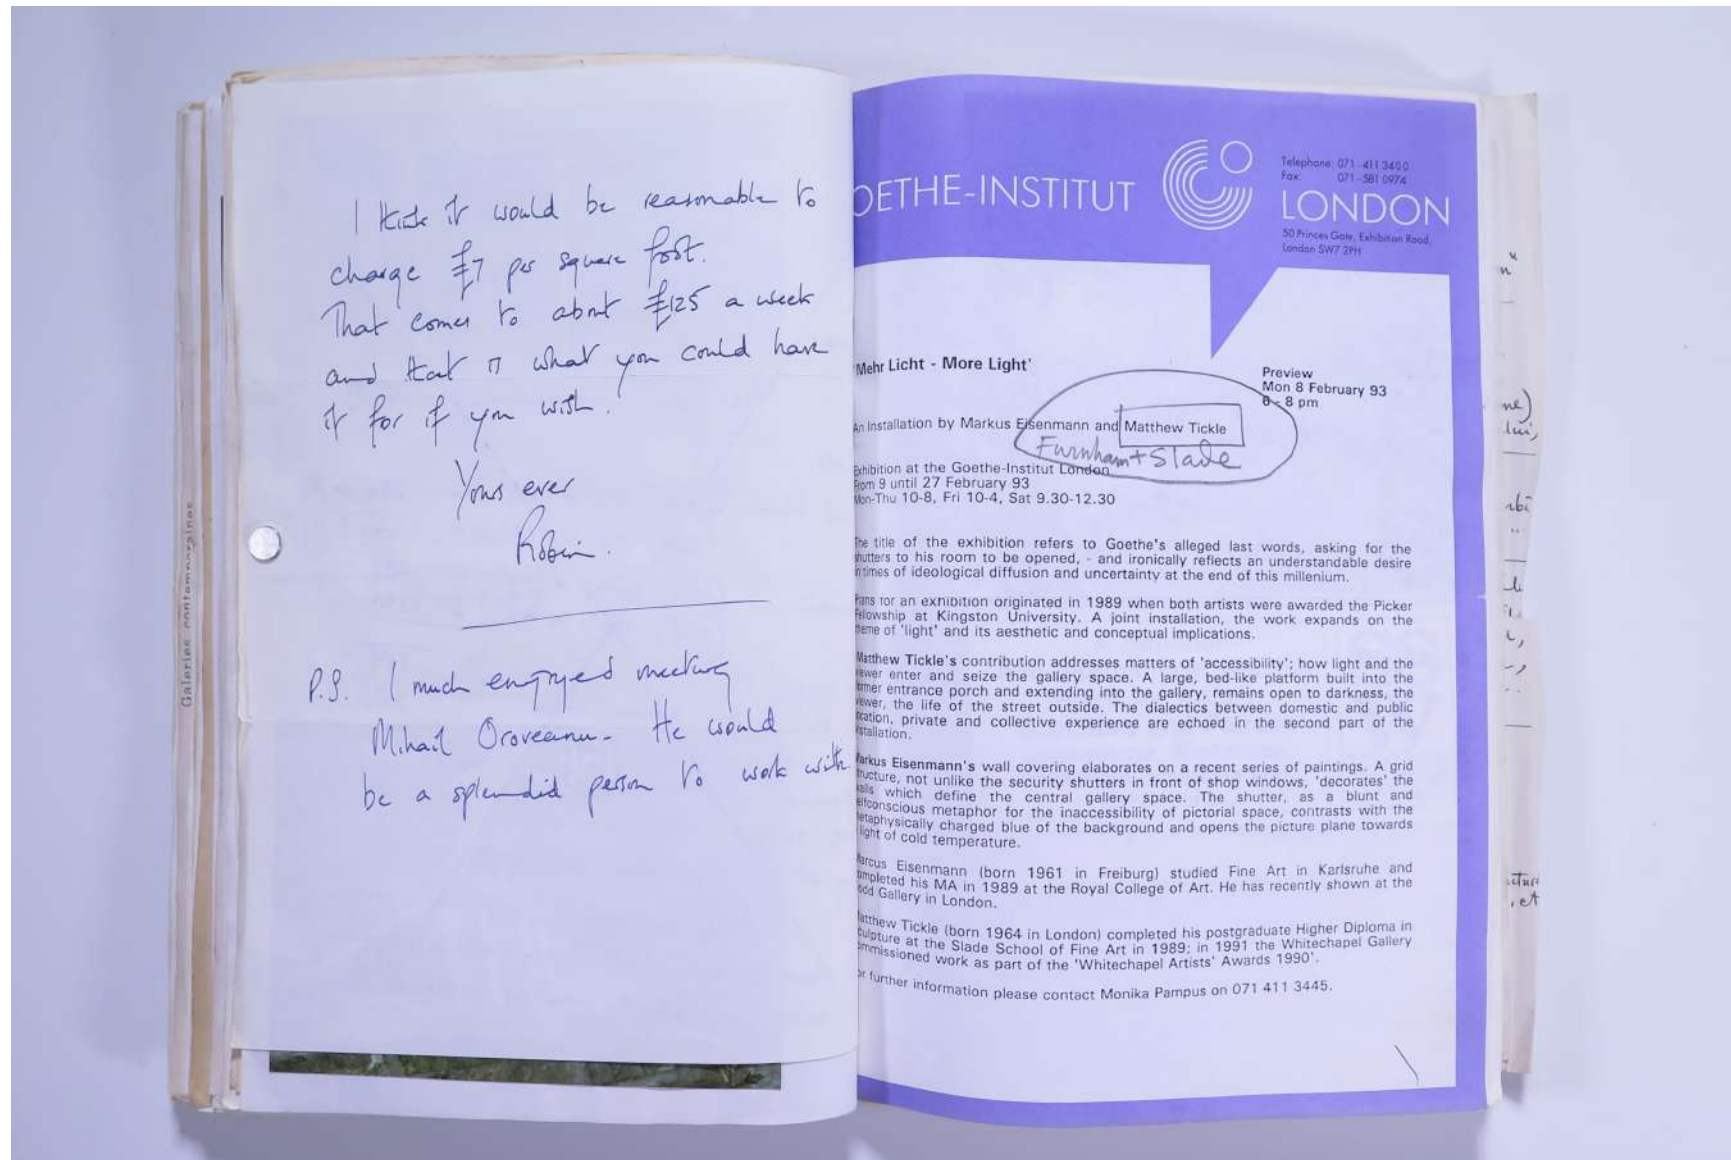 I think it would be reasonable to
charge £7 per square foot.
That comes to about £125 a week
and that is what you could have
it for if you wish.
Yours ever
Robin.
P.S. I much enjoyed meeting
Mihail Oroveanu. He would
be a splendid person to work with
Galeries contemporaines
OETHE-INSTITUT
Telephone: 071-411 3400
Fax: 071-581 0974
LONDON
50 Princes Gate, Exhibition Road,
London SW7 2PH
Mehr Licht - More Light'
Preview
Mon 8 February 93
6 - 8 pm
An Installation by Markus Eisenmann and Matthew Tickle
Furnham + Slade
Exhibition at the Goethe-Institut London
From 9 until 27 February 93
Mon-Thu 10-8, Fri 10-4, Sat 9.30-12.30
The title of the exhibition refers to Goethe's alleged last words, asking for the
shutters to his room to be opened, - and ironically reflects an understandable desire
in times of ideological diffusion and uncertainty at the end of this millenium.
Plans for an exhibition originated in 1989 when both artists were awarded the Picker
Fellowship at Kingston University. A joint installation, the work expands on the
theme of 'light' and its aesthetic and conceptual implications.
Matthew Tickle's contribution addresses matters of 'accessibility'; how light and the
viewer enter and seize the gallery space. A large, bed-like platform built into the
former entrance porch and extending into the gallery, remains open to darkness, the
viewer, the life of the street outside. The dialectics between domestic and public
location, private and collective experience are echoed in the second part of the
installation.
Markus Eisenmann's wall covering elaborates on a recent series of paintings. A grid
structure, not unlike the security shutters in front of shop windows, 'decorates' the
walls which define the central gallery space. The shutter, as a blunt and
selfconscious metaphor for the inaccessibility of pictorial space, contrasts with the
metaphysically charged blue of the background and opens the picture plane towards
light of cold temperature.
Marcus Eisenmann (born 1961 in Freiburg) studied Fine Art in Karlsruhe and
completed his MA in 1989 at the Royal College of Art. He has recently shown at the
Gallery in London.
Matthew Tickle (born 1964 in London) completed his postgraduate Higher Diploma in
sculpture at the Slade School of Fine Art in 1989; in 1991 the Whitechapel Gallery
commissioned work as part of the 'Whitechapel Artists' Awards 1990'.
For further information please contact Monika Pampus on 071 411 3445.